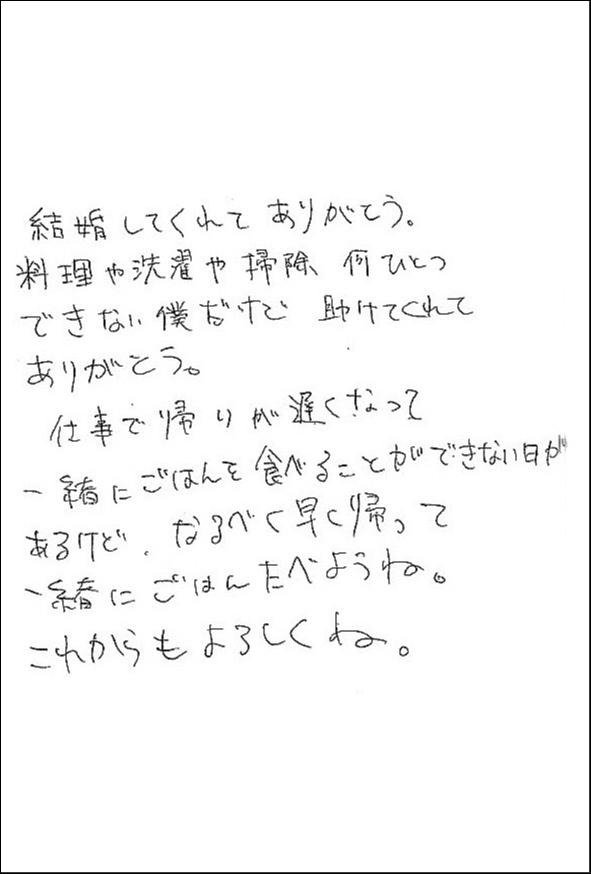 結婚してくれて ありがとう。
料理や洗濯や掃除、何ひとつ
できない僕だけど 助けてくれて
ありがとう。
仕事で帰りが遅くなって
一緒にごはんを食べることができない日が
あるけど、なるべく早く帰って
一緒にごはんたべようね。
これからもよろしくね。